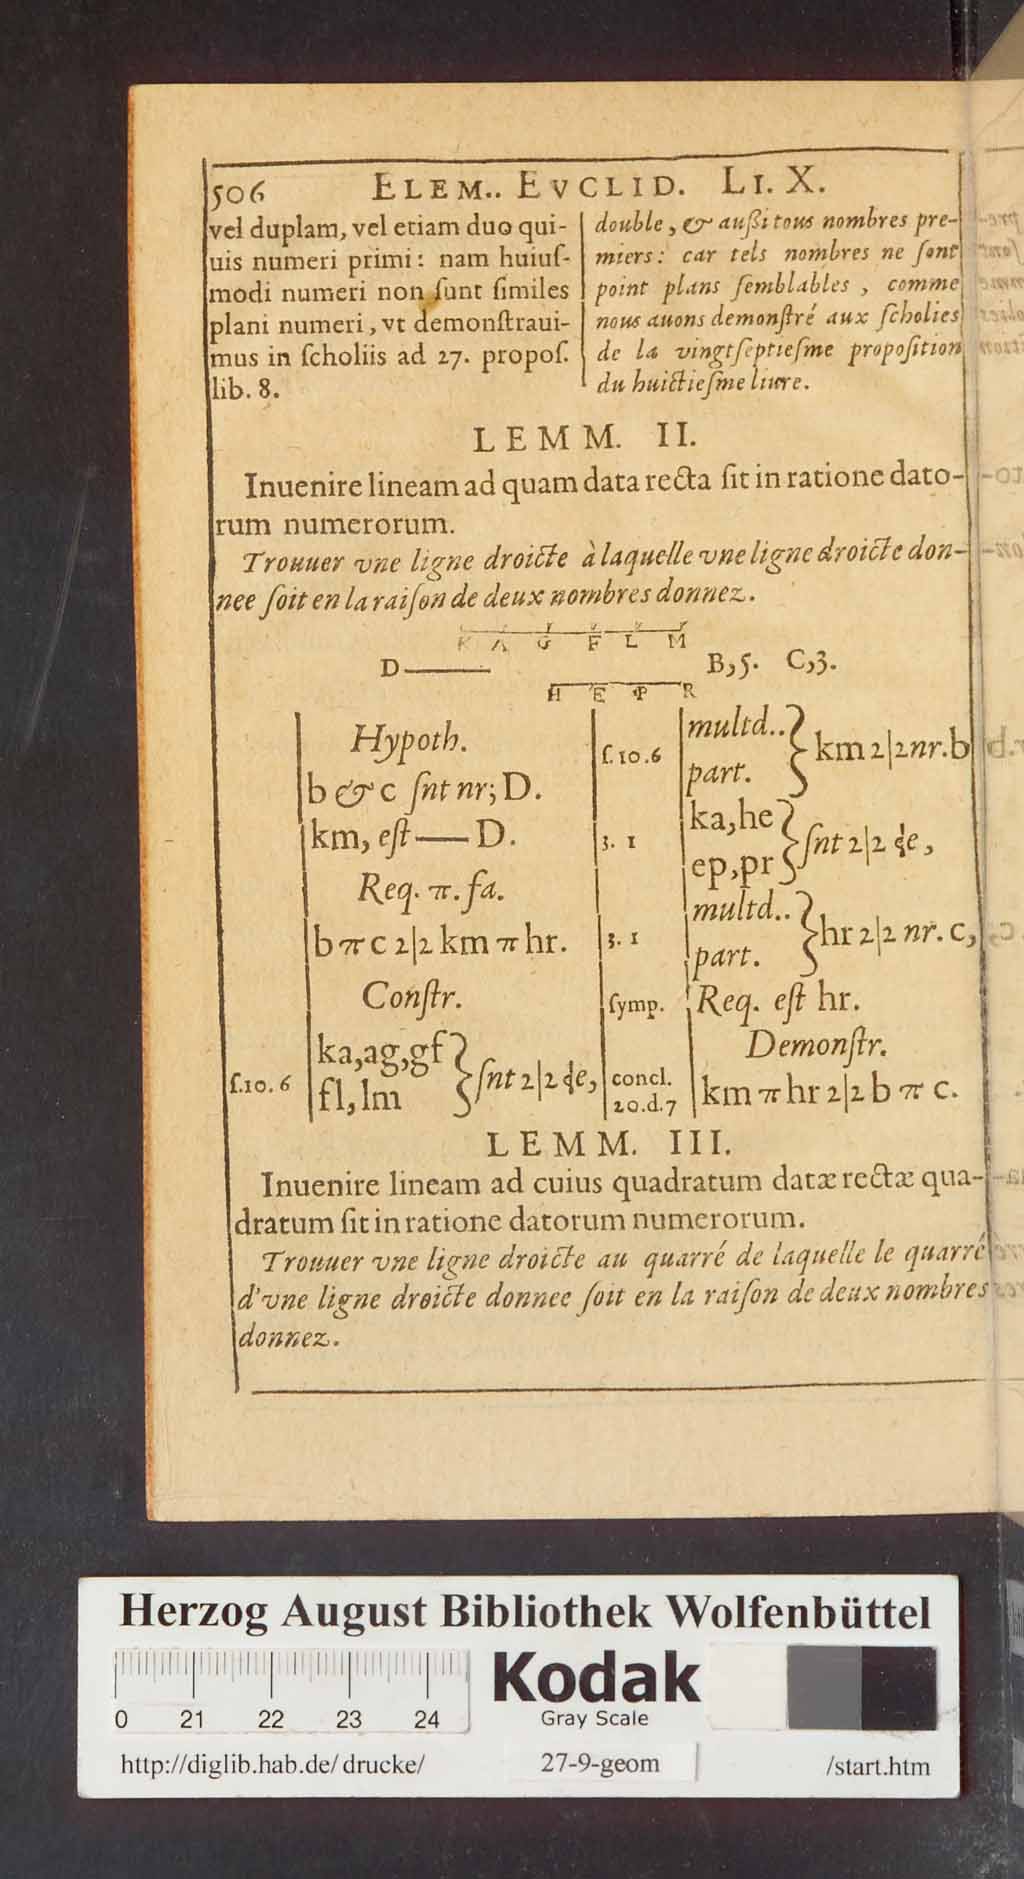 506 ELEM.. EVCLID. LI. X.
vel duplam, vel etiam duo qui-
uis numeri primi: nam huiuſ-
modi numeri non ſunt ſimiles
plani numeri, vt demonſtraui-
mus in ſcholiis ad 27. propoſ.
lib. 8.
double, & außi tous nombres pre-
miers: car tels nombres ne ſont
point plans ſemblables, comme
nous auons demonſtré aux ſcholies
de la vingtſeptieſme propoſition
du huictieſme liure.
LEMM. II.
Inuenire lineam ad quam data recta ſit in ratione dato-
rum numerorum.
Trouuer vne ligne droicte à laquelle vne ligne droicte don-
nee ſoit en la raiſon de deux nombres donnez.
K A G F L M
D—— B,5. C,3.
H E P R
Hypoth.
b & c ſnt nr; D.
km, eſt — D.
Req. π. fa.
b π c 2|2 km π hr.
Conſtr.
ſ.10.6 ka,ag,gf } ſnt 2|2 de,
fl,lm
ſ.10.6 multd.. } km 2|2 nr. b
part.
3. 1 ka,he } ſnt 2|2 de,
ep,pr
3. 1 multd.. } hr 2|2 nr. c,
part.
ſymp. Req. eſt hr.
Demonſtr.
concl. km π hr 2|2 b π c.
20.d.7
LEMM. III.
Inuenire lineam ad cuius quadratum datæ rectæ qua-
dratum ſit in ratione datorum numerorum.
Trouuer vne ligne droicte au quarré de laquelle le quarré
d'vne ligne droicte donnee ſoit en la raiſon de deux nombres
donnez.
Herzog August Bibliothek Wolfenbüttel
0 21 22 23 24
Kodak
Gray Scale
http://diglib.hab.de/drucke/ 27-9-geom /start.htm